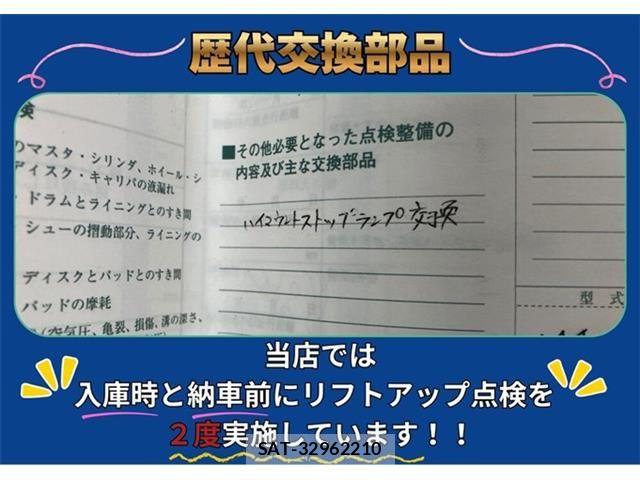 歴代交換部品
検
のマスタ・シリンダ、ホイール・シ
ディスク・キャリパの液漏れ
・ドラムとライニングとのすき間
シューの摺動部分、ライニングの
ディスクとパッドとのすき間
パッドの摩耗
(空気圧、亀裂、損傷、溝の深さ、
■その他必要となった点検整備の
内容及び主な交換部品
ハイマウントストップランプ交換
型式
当店では
入庫時と納車前にリフトアップ点検を
2度実施しています!!
SAT-32962210